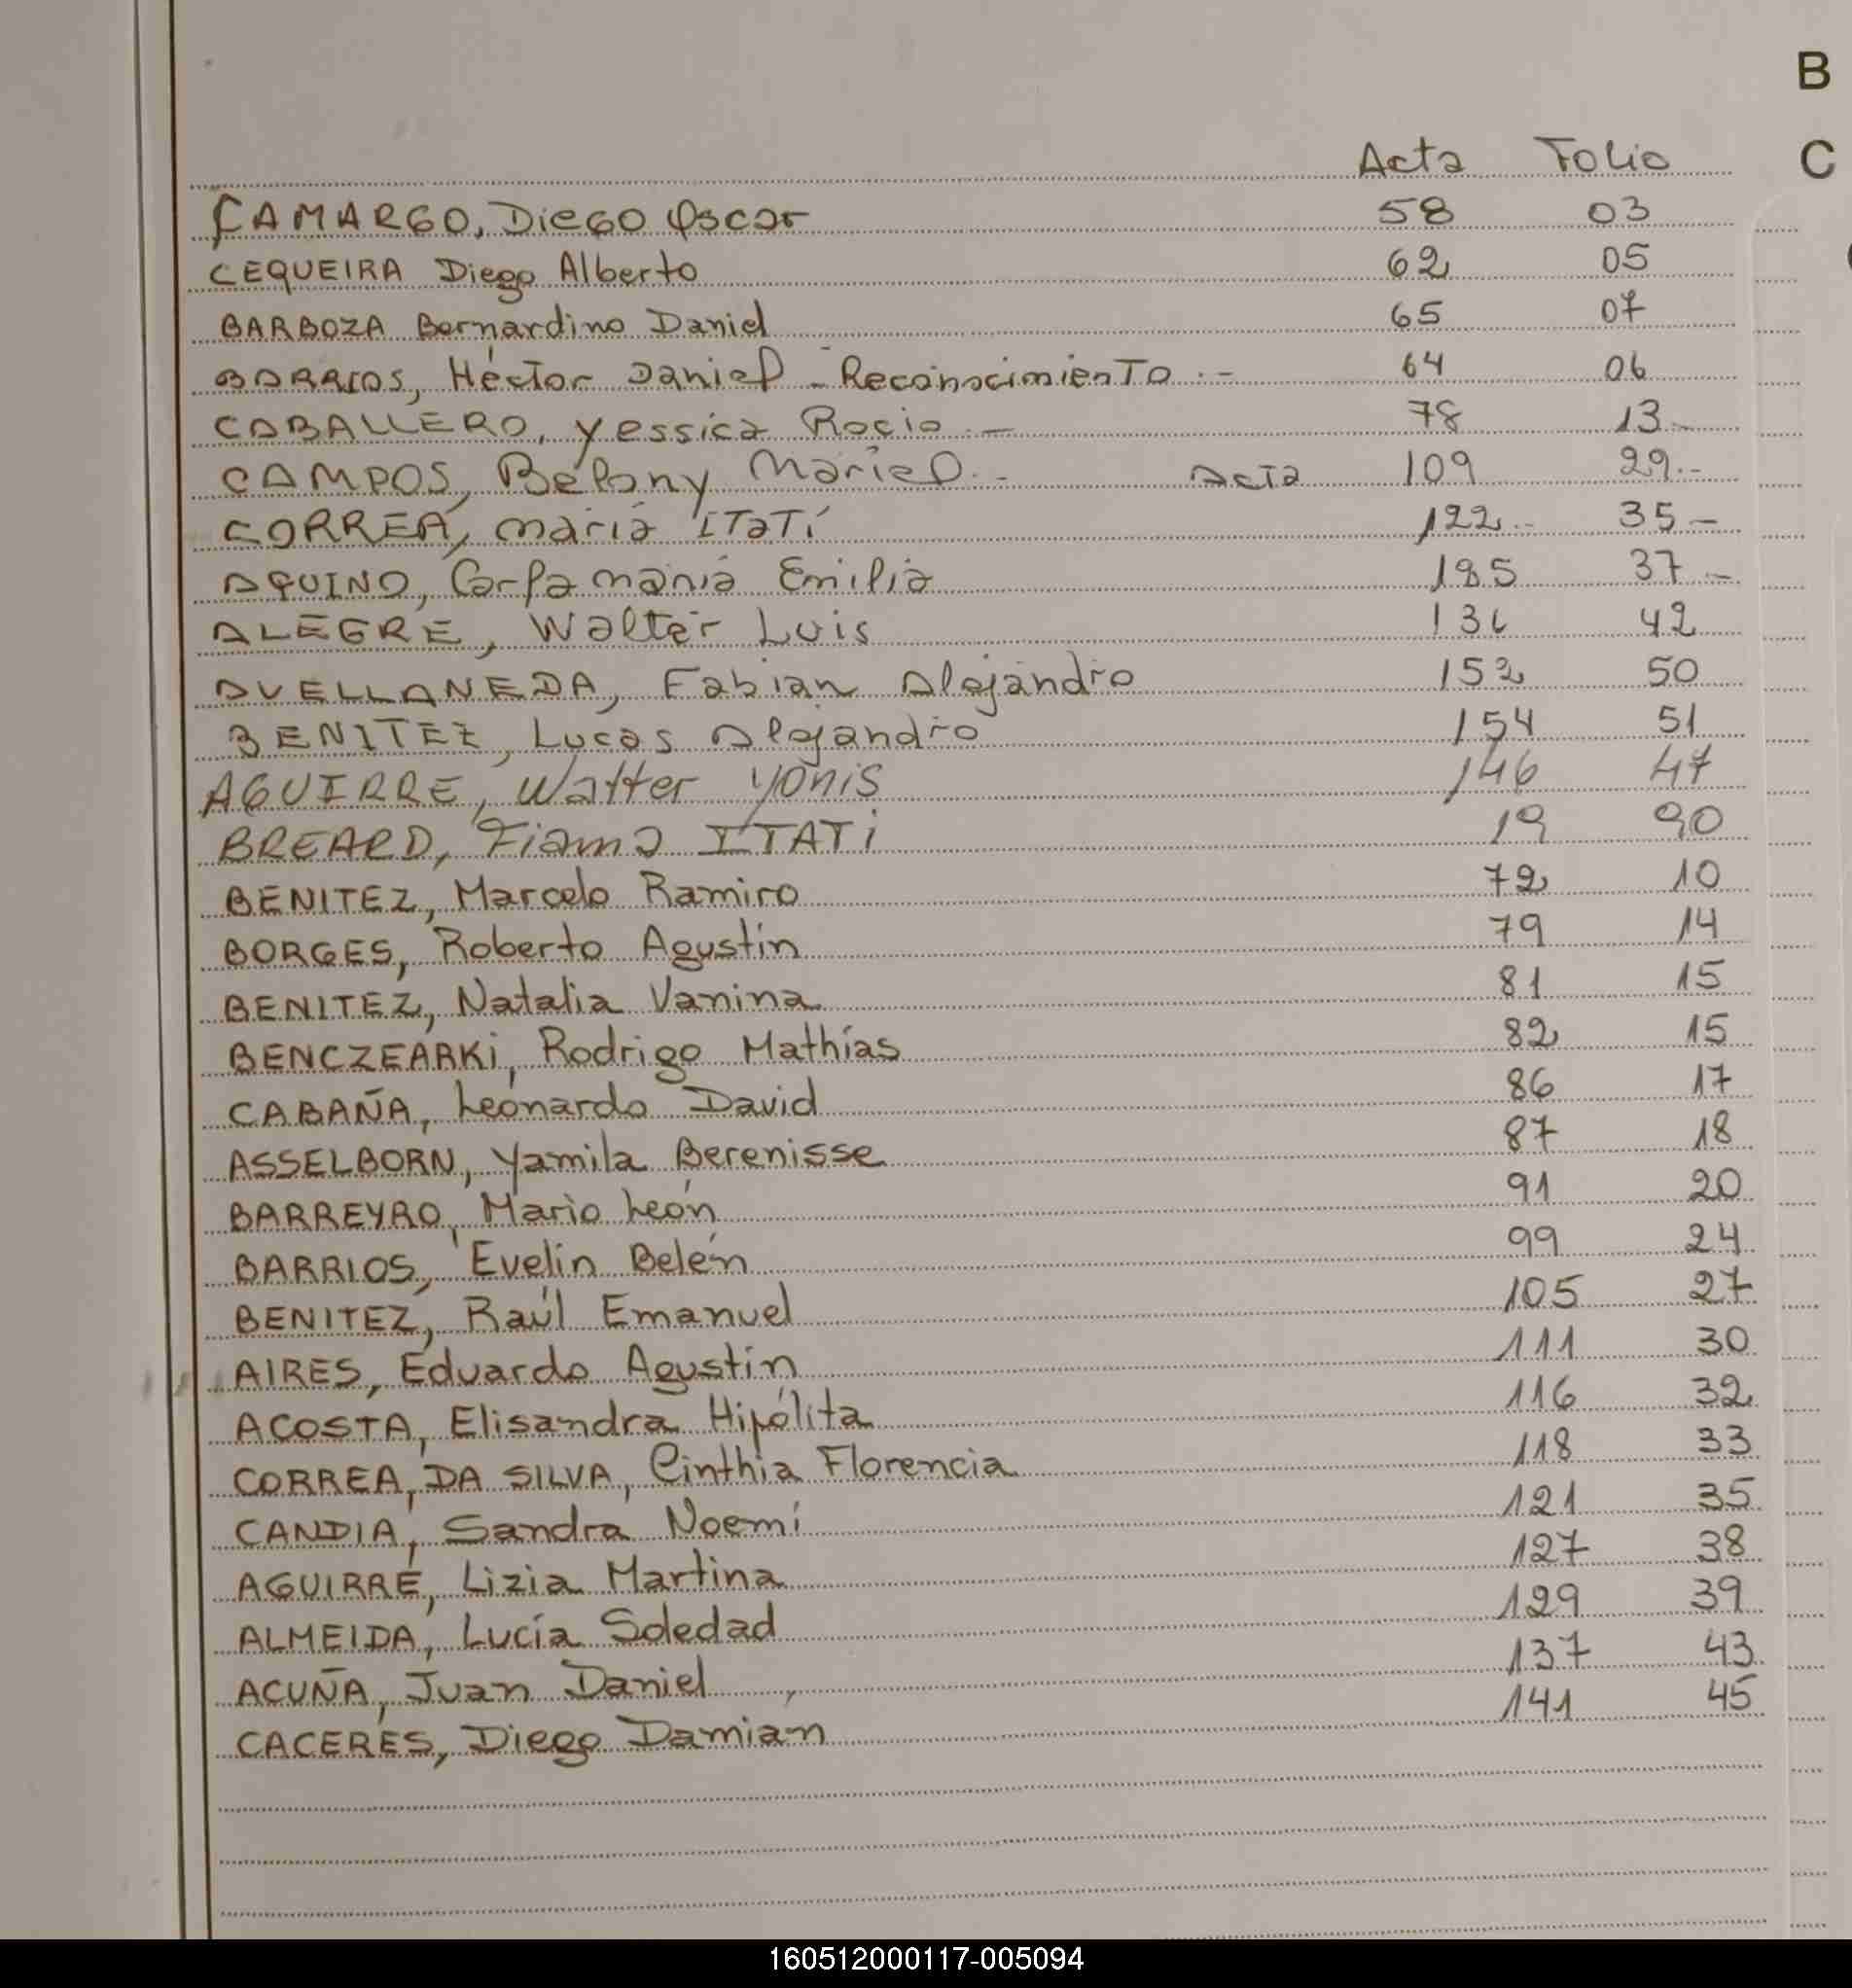 B
Acta Folio C
CAMARGO, Diego Oscar 58 03
CEQUEIRA Diego Alberto 62 05
BARBOZA Bernardino Daniel 65 07
BARRIOS, Héctor Daniel - Reconocimiento .- 64 06
CABALLERO, Yessica Rocio .- 78 13.-
CAMPOS, Belany Mariel .- Acta 109 29.-
CORREA, Maria Itatí 122.- 35-
AQUINO, Carla Emilia 37-
ALEGRE, Walter Luis 42
AVELLANEDA, Fabian Alejandro 152 50
BENITEZ, Lucas Alejandro 154 51
AGUIRRE, Walter Yonis 146 47
BREARD, Fiama ITATi 19 90
BENITEZ, Marcelo Ramiro 72 10
BORGES, Roberto Agustin 79 14
BENITEZ, Natalia Vanina 81 15
BENCZEARKi, Rodrigo Mathías 82 15
CABAÑA, Leonardo David 86 17
ASSELBORN, Yamila Berenisse 87 18
BARREYRO, Mario León 91 20
BARRIOS, Evelin Belén 99 24
BENITEZ, Raúl Emanuel 105 27
AIRES, Eduardo Agustin 111 30
ACOSTA, Elisandra Hipólita 116 32
CORREA, DA SILVA, Cinthia Florencia 118 33
CANDIA, Sandra Noemí 121 35
AGUIRRE, Lizia Martina 127 38
ALMEIDA, Lucía Soledad 129 39
ACUÑA, Juan Daniel 137 43
CACERES, Diego Damián 141 45
160512000117-005094